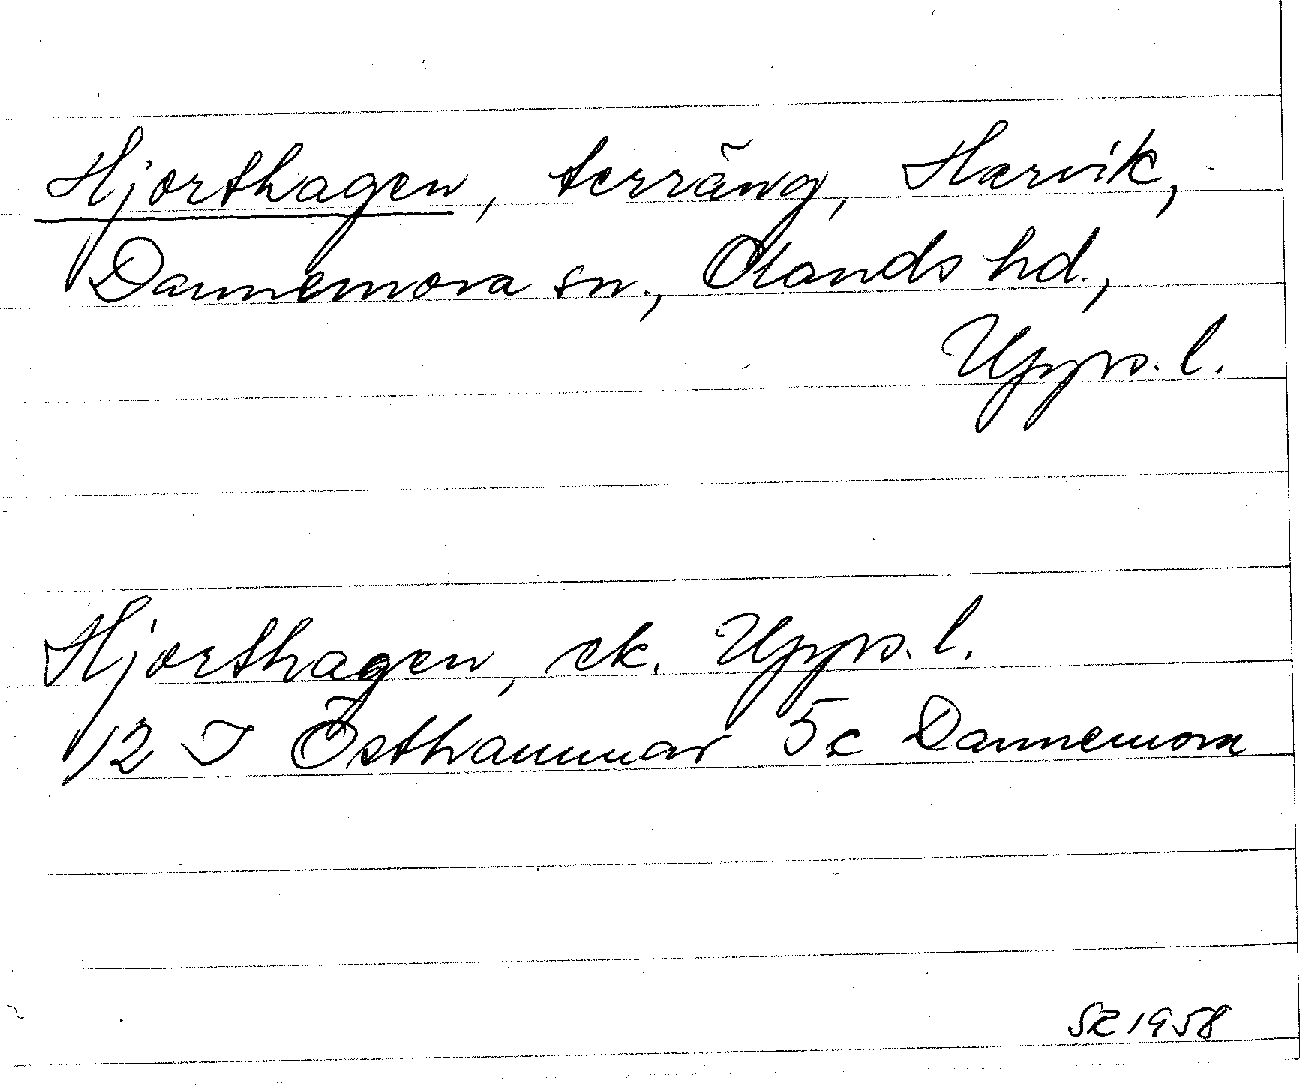 Hjorthagen, terräng, Harvik,
Dannemora sn., Olands hd.,
Upps. l.
Hjorthagen, ek. Upps. l.
12 I Östhammar 5c Dannemora
SR 1958